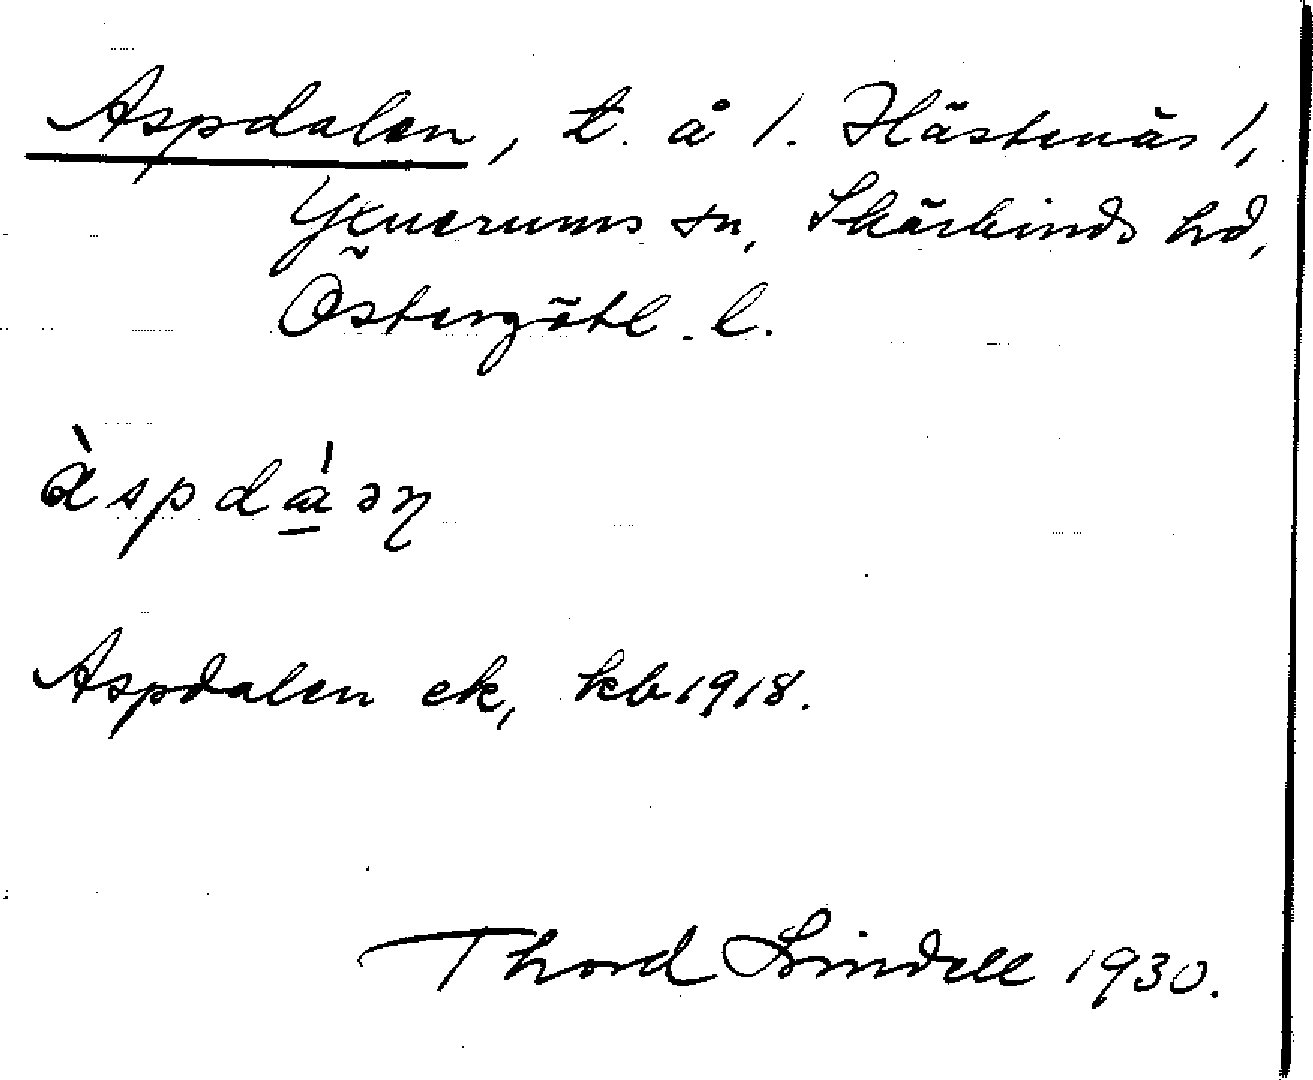 Aspdalen, t. å 1. Hästenäs 1,
Yxnerums sn, Skärkinds hd,
Östergötl. l.
àspdàən
Aspdalen ek, kb 1918.
Thord Lindell 1930.